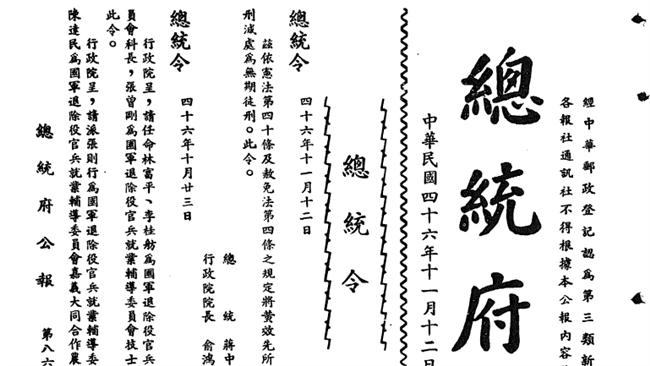 經中華郵政登記認為第三類新
各報社通訊社不得根據本公報內容
總統府
中華民國四十六年十一月十二日
總統令
總統令
四十六年十一月十二日
茲依憲法第四十條及赦免法第四條之規定將黃效先所
刑減處為無期徒刑。此令。
總統 蔣中
行政院院長 俞鴻
總統令
四十六年十月廿三日
行政院呈，請任命林富平、李桂舫為國軍退除役官兵
員會科長，張曾剛為國軍退除役官兵就業輔導委員會技士
此令。
行政院呈，請派張則行為國軍退除役官兵就業輔導委
陳達民為國軍退除役官兵就業輔導委員會嘉義大同合作農
總統府公報
第八六